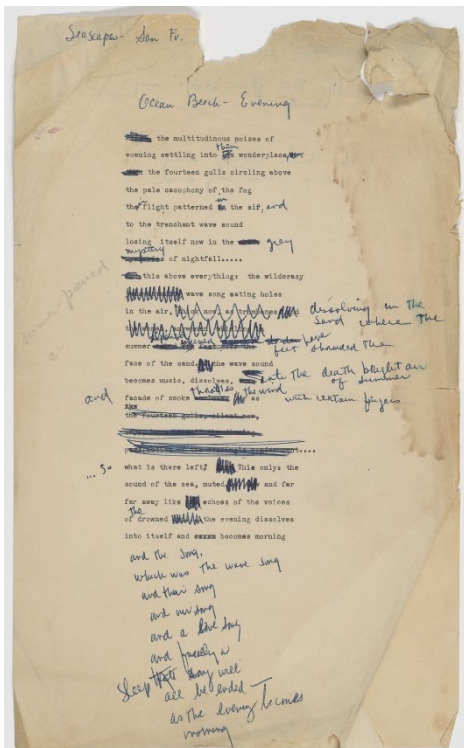 Seascapes - San Fr.
Ocean Beach - Evening
the multitudinous noises of
evening settling into their wonderplace,
the fourteen gulls circling above
the pale cacophony of the fog
their flight patterned in the air, and
to the trenchant wave sound
losing itself now in the grey
mystery of nightfall.....
this above everything: the wildcrazy
wave song eating holes
in the air, dissolving in the
sand where the
summer
feet shamded the
face of the sand, the wave sound
becomes music, dissolves, into the death bright air
of summer
and facade of smoke the wind as
with certain fingers
the fourteen gulls, silent now,
... so
what is there left? This only: the
sound of the sea, muted and far
far away like echoes of the voices
of the drowned the evening dissolves
into itself and becomes morning
and the song,
which was the wave song
and their song
and our song
and a love song
and a
sleep song will
all be ended -
as the evening becomes
morning